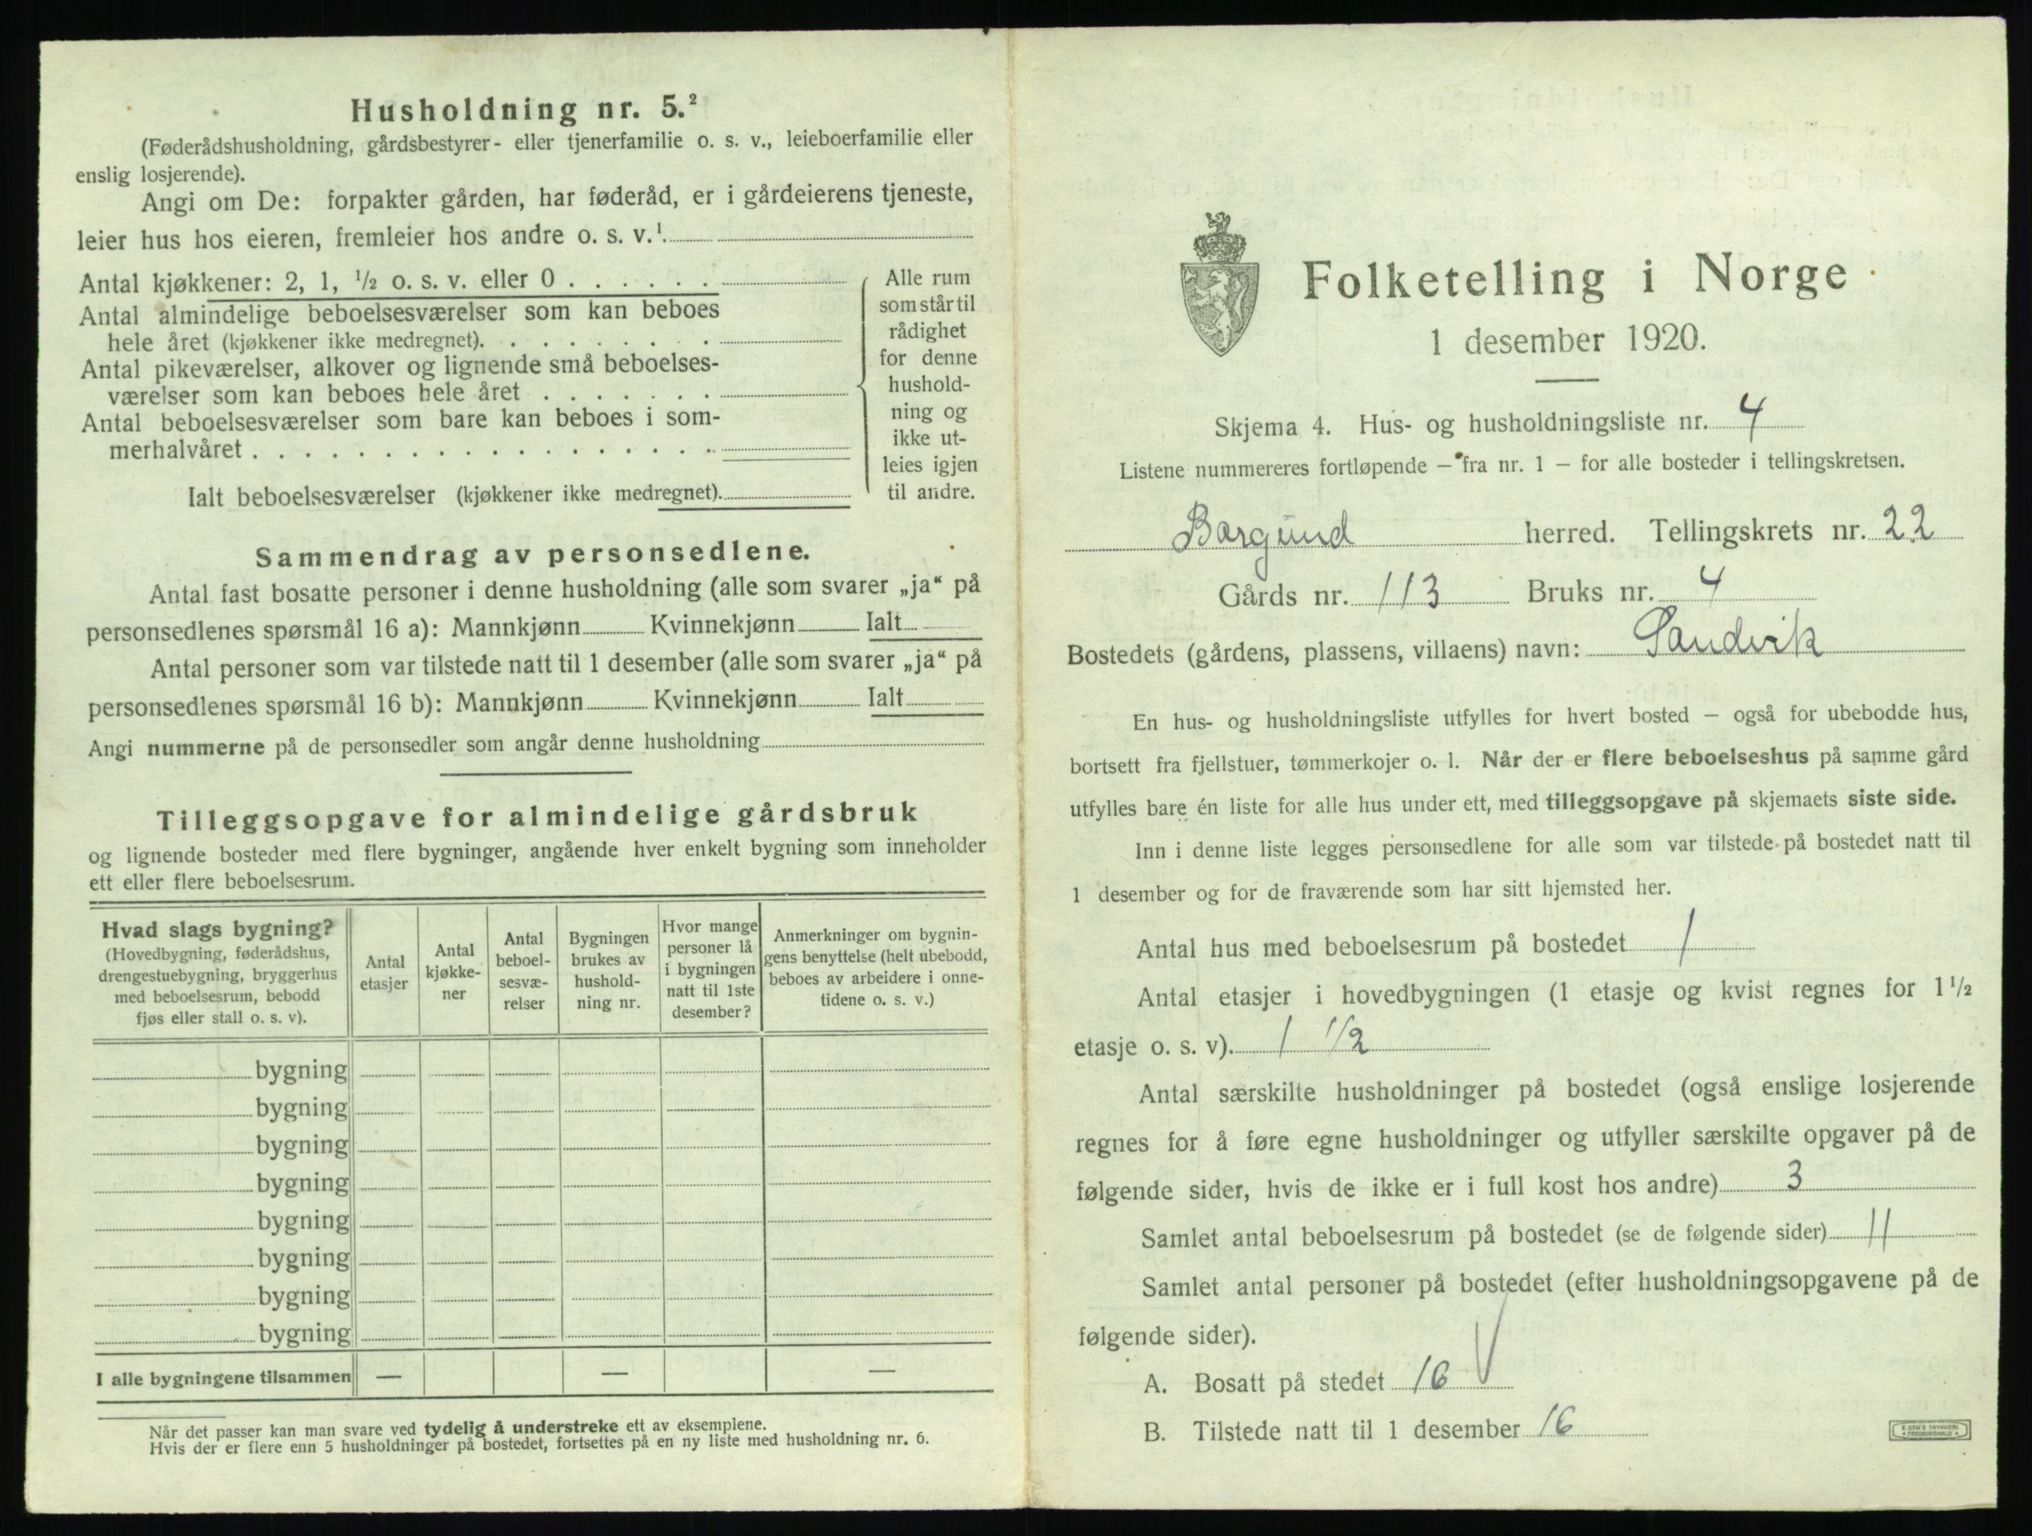 Husholdning nr. 5.²
(Føderådshusholdning, gårdsbestyrer- eller tjenerfamilie o. s. v., leieboerfamilie eller
enslig losjerende).
Angi om De: forpakter gården, har føderåd, er i gårdeierens tjeneste,
leier hus hos eieren, fremleier hos andre o. s. v.¹
Antal kjøkkener: 2, 1, ½ o. s. v. eller 0 . . . . . .
Antal almindelige beboelsesværelser som kan beboes
hele året (kjøkkener ikke medregnet). . . . . . . .
Antal pikeværelser, alkover og lignende små beboelses-
værelser som kan beboes hele året . . . . . . .
Antal beboelsesværelser som bare kan beboes i som-
merhalvåret . . . . . . . . . . . . . . . . . .
Ialt beboelsesværelser (kjøkkener ikke medregnet).
Alle rum
som står til
rådighet
for denne
hushold-
ning og
ikke ut-
leies igjen
til andre.
Sammendrag av personsedlene.
Antal fast bosatte personer i denne husholdning (alle som svarer „ja“ på
personsedlenes spørsmål 16 a): Mannkjønn Kvinnekjønn Ialt
Antal personer som var tilstede natt til 1 desember (alle som svarer „ja“ på
personsedlenes spørsmål 16 b): Mannkjønn Kvinnekjønn Ialt
Angi nummerne på de personsedler som angår denne husholdning
Tilleggsopgave for almindelige gårdsbruk
og lignende bosteder med flere bygninger, angående hver enkelt bygning som inneholder
ett eller flere beboelsesrum.
Hvad slags bygning?
(Hovedbygning, føderådshus,
drengestuebygning, bryggerhus
med beboelsesrum, bebodd
fjøs eller stall o. s. v).
Antal
etasjer
Antal
kjøkke-
ner
Antal
beboel-
sesvæ-
relser
Bygningen
brukes av
hushold-
ning nr.
Hvor mange
personer lå
i bygningen
natt til 1ste
desember?
Anmerkninger om bygnin-
gens benyttelse (helt ubebodd,
beboes av arbeidere i onne-
tidene o. s. v.)
bygning
bygning
bygning
bygning
bygning
bygning
bygning
bygning
I alle bygningene tilsammen — — —
Når det passer kan man svare ved tydelig å understreke ett av eksemplene.
Hvis der er flere enn 5 husholdninger på bostedet, fortsettes på en ny liste med husholdning nr. 6.
Folketelling i Norge
1 desember 1920.
Skjema 4. Hus- og husholdningsliste nr. 4
Listene nummereres fortløpende – fra nr. 1 – for alle bosteder i tellingskretsen.
Borgund herred. Tellingskrets nr. 22
Gårds nr. 113 Bruks nr. 4
Bostedets (gårdens, plassens, villaens) navn: Sandvik
En hus- og husholdningsliste utfylles for hvert bosted – også for ubebodde hus,
bortsett fra fjellstuer, tømmerkojer o. l. Når der er flere beboelseshus på samme gård
utfylles bare én liste for alle hus under ett, med tilleggsopgave på skjemaets siste side.
Inn i denne liste legges personsedlene for alle som var tilstede på bostedet natt til
1 desember og for de fraværende som har sitt hjemsted her.
Antal hus med beboelsesrum på bostedet 1
Antal etasjer i hovedbygningen (1 etasje og kvist regnes for 1½
etasje o. s. v). 1 1/2
Antal særskilte husholdninger på bostedet (også enslige losjerende
regnes for å føre egne husholdninger og utfyller særskilte opgaver på de
følgende sider, hvis de ikke er i full kost hos andre) 3
Samlet antal beboelsesrum på bostedet (se de følgende sider) 11
Samlet antal personer på bostedet (efter husholdningsopgavene på de
følgende sider).
A. Bosatt på stedet 16
B. Tilstede natt til 1 desember 16